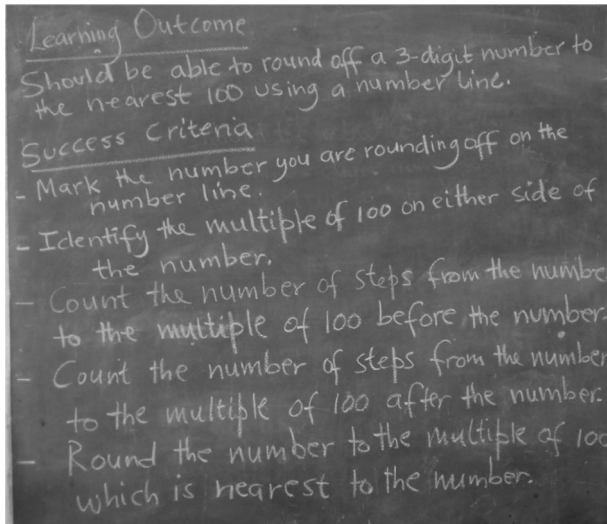 Learning Outcome
Should be able to round off a 3-digit number to
the nearest 100 using a number line.
Success Criteria
- Mark the number you are rounding off on the
number line.
- Identify the multiple of 100 on either side of
the number.
- Count the number of steps from the numbe
to the multiple of 100 before the number.
- Count the number of steps from the number
to the multiple of 100 after the number.
- Round the number to the multiple of 100
which is nearest to the number.